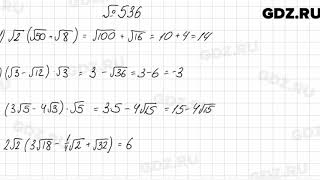 GDZ.RU
№536
) √2 (√50 + √8) = √100 + √16 = 10 + 4 = 14
) (√3 - √12) · √3 = 3 - √36 = 3 - 6 = -3
(3√5 - 4√3) · √5 = 3·5 - 4√15 = 15 - 4√15
2√2 (3√18 - ¼√2 + √32) = 6